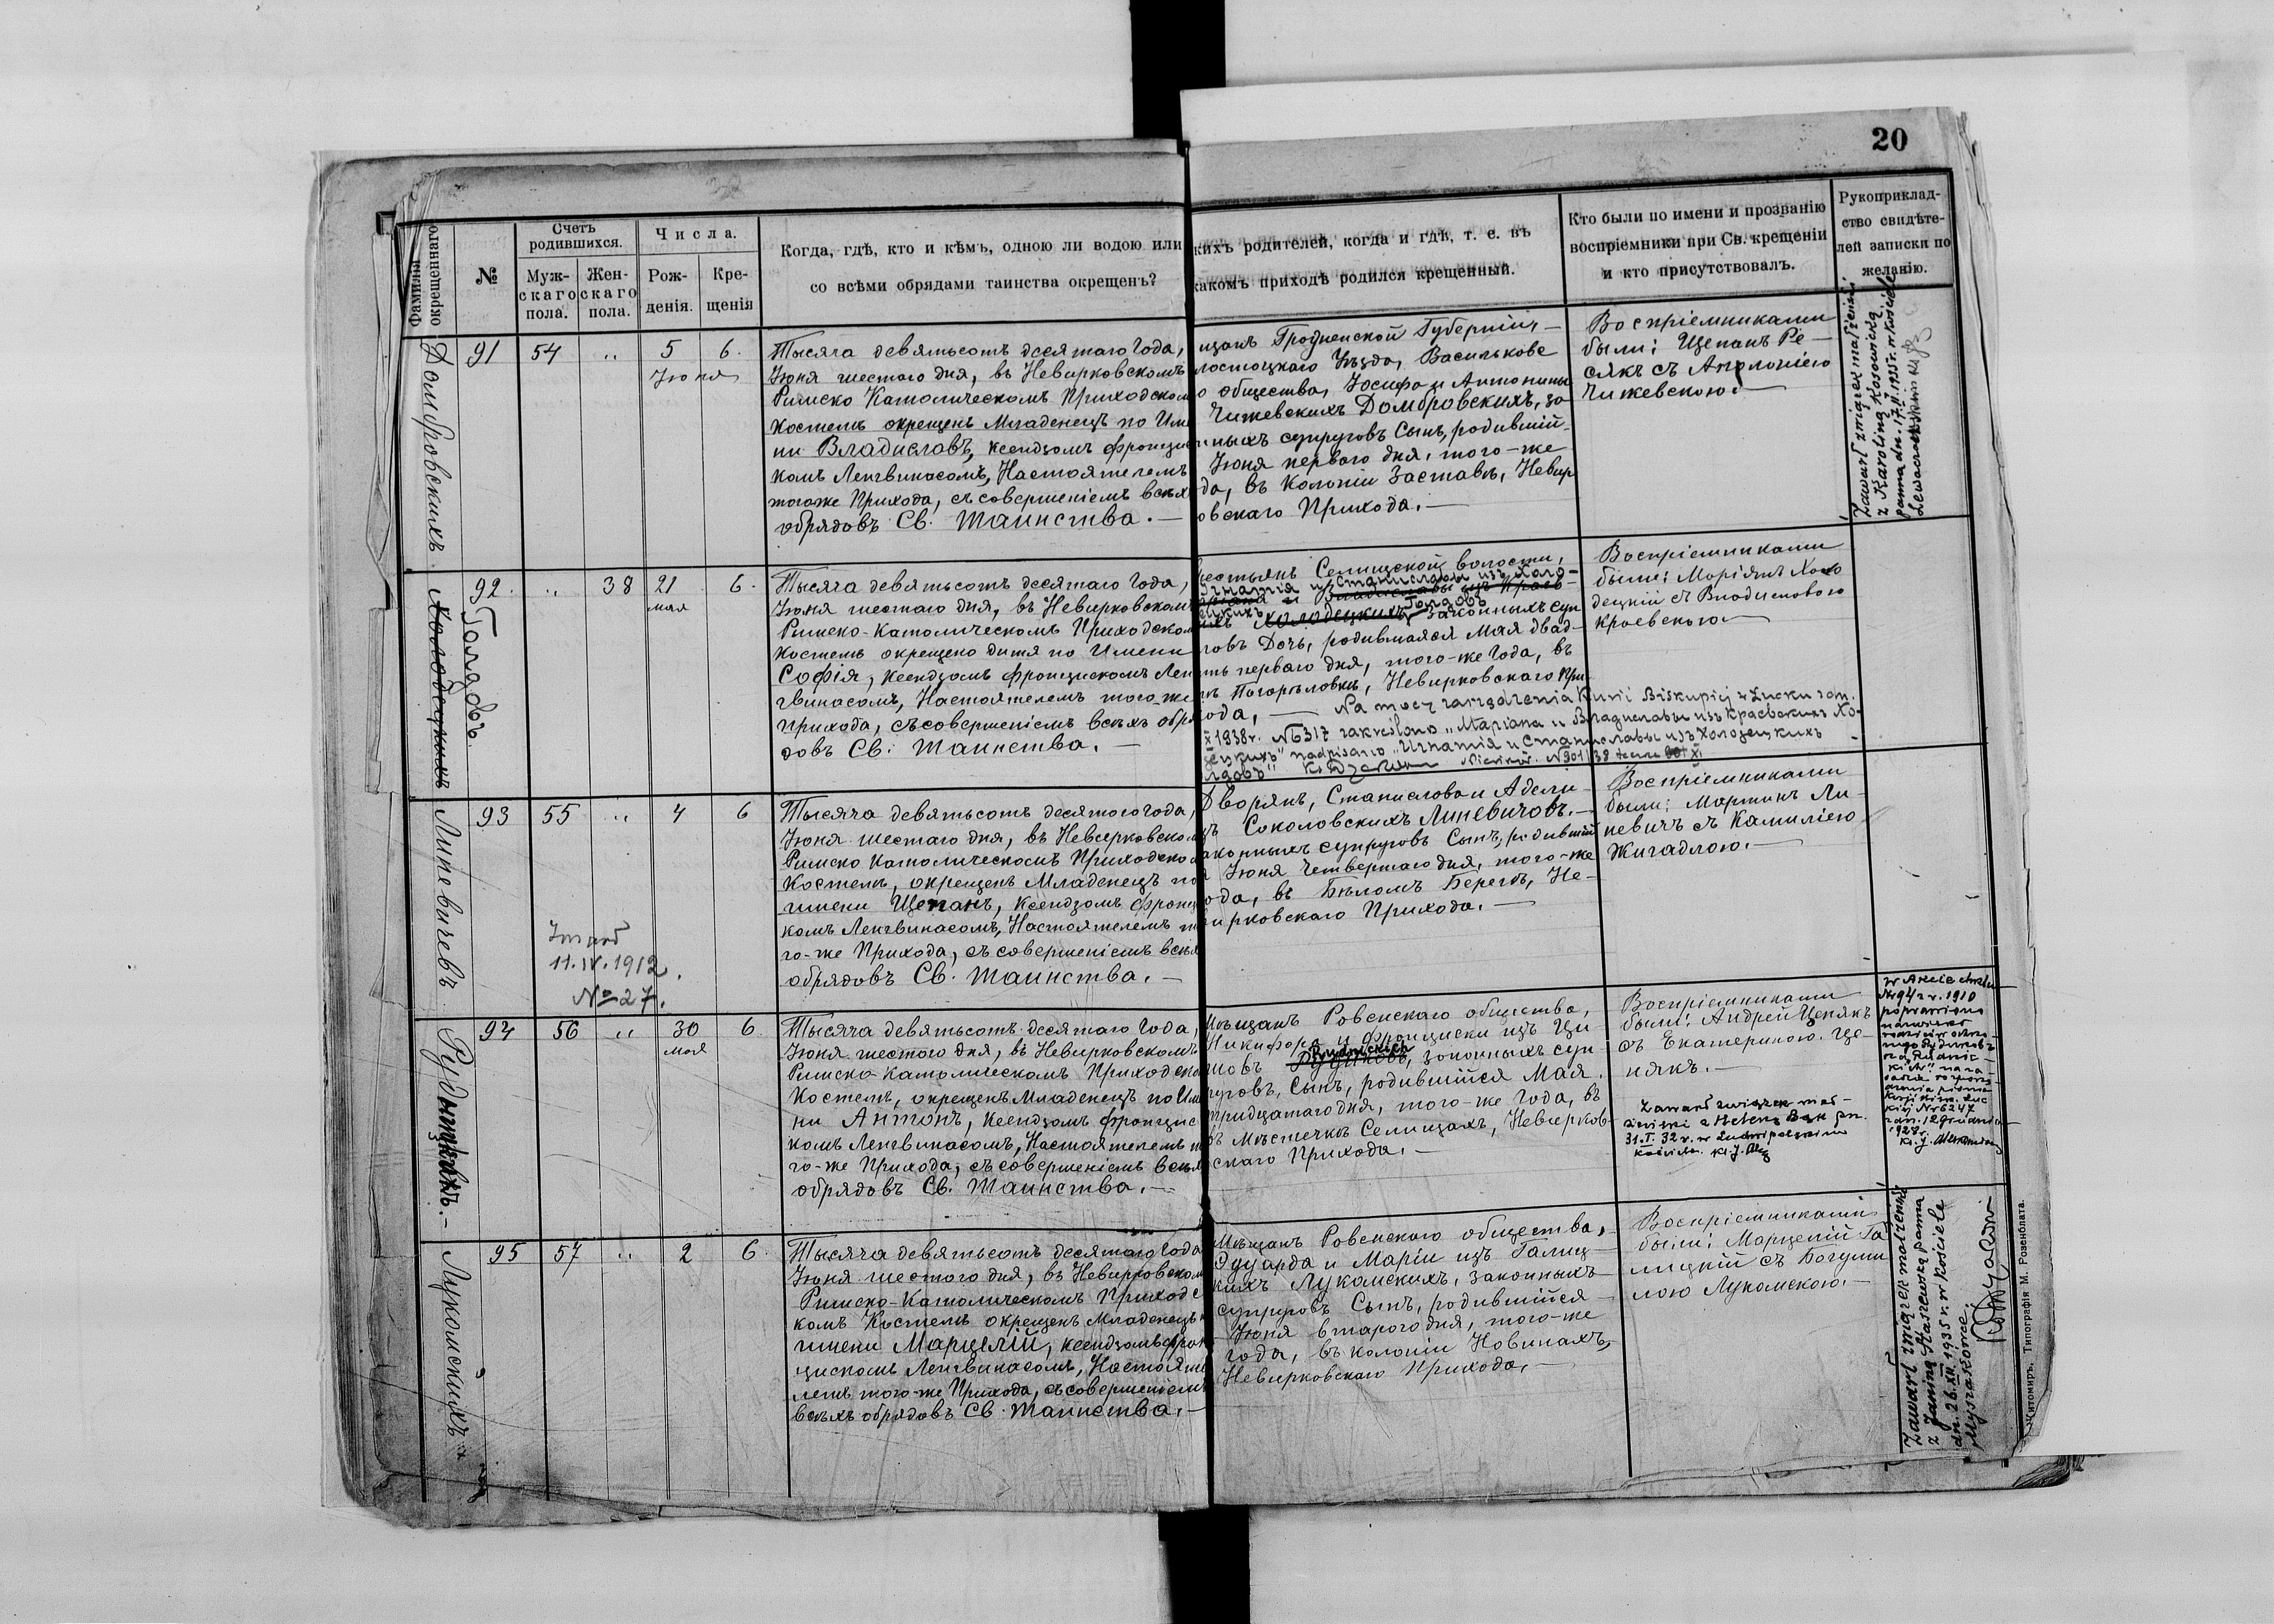 20
Фамилія окрещеннаго
№
Счетъ родившихся.
Муж-
скаго
пола.
Жен-
скаго
пола.
Числа.
Рож-
денія.
Кре-
щенія
Когда, гдѣ, кто и кѣмъ, одною ли водою или
со всѣми обрядами таинства окрещенъ?
кихъ родителей, когда и гдѣ, т. е. въ
какомъ приходѣ родился крещенный.
Кто были по имени и прозванію
воспріемники при Св. крещеніи
и кто присутствовалъ.
Рукоприклад-
ство свидѣте-
лей записки по
желанію.
Домбровскихъ
91 54 „ 5 6.
Іюня
Тысяча девятьсотъ десятаго Года,
Іюня шестаго дня, въ Невирковскомъ
Римско Католическомъ Приходском
Костелѣ окрещенъ Младенецъ по Име
ни Владиславъ, Ксендзомъ Францис
комъ Ленгвинасомъ, Настоятелемъ
тогоже Прихода, съ совершеніемъ всѣх
обрядовъ Св. Таинства.—
щанъ Гродненской Губерніи,—
лостоцкаго Уѣзда, Васильковс
о общества, Іосифа и Антонины
Чижевскихъ Домбровскихъ, за
нныхъ супруговъ Сынъ, родившій-
Іюня перваго дня, того-же
да, въ Колоніи Заставѣ, Невир
овскаго Прихода.—
Воспріемниками
были: Щепанъ Ре-
сякъ съ Аполоніею
Чижевскою.—
Zawarł związek małżeński
z Karoliną Kosowicką
panną dn. 17.II.1935 r. w kościele
Холодецкихъ
Голядовъ.
92. „ 38 21 6.
мая
Тысяча девятьсотъ десятаго Года,
Іюня шестаго дня, въ Невирковском
Римско-Католическомъ Приходском
Костелѣ окрещено дитя по Имени
Софія, Ксендзомъ Францискомъ Лен
гвинасомъ, Настоятелемъ того-же
Прихода, съ совершеніемъ всѣхъ обря
довъ Св. Таинства.—
естьянъ Селищской волости,
Игнатія и Станиславы изъ Холо-
ріана и Владиславы изъ Краев-
децкихъ Голядовъ
ихъ Холодецкихъ, законныхъ суп
говъ Дочь, родившаяся Мая двад-
ть перваго дня, того-же Года, въ
нѣ Погорѣловкѣ, Невирковскаго При
ода,— Na mocy zarządzenia Kurii Biskupiej w Łucku z dn.
X 1938 r. № 6317 zakreślono „Маріана и Владиславы изъ Краевскихъ Хо-
децкихъ" nadpisano „Игнатія и Станиславы изъ Холодецкихъ
лядовъ"
Воспріемниками
были: Маріянъ Холо
децкій съ Владиславою
Краевскою—
Линевичевъ
93 55 „ 4 6
Zmarł
11.IV.1912.
№ 27.
Тысяча девятьсотъ десятаго Года,
Іюня шестаго дня, въ Невирковском
Римско Католическомъ Приходском
Костелѣ, окрещенъ Младенецъ по
имени Щепанъ, Ксендзомъ Францис
комъ Ленгвинасомъ, Настоятелемъ т
го-же Прихода, съ совершеніемъ всѣх
обрядовъ Св. Таинства.—
Дворянъ, Станислава и Адели
зъ Соколовскихъ Линевичовъ.—
аконныхъ супруговъ Сынъ, родившій
я Іюня Четвертаго дня, того-же
ода, въ Бѣломъ Берегѣ, Не-
вирковскаго Прихода.—
Воспріемниками
были: Мартинъ Ли-
невичъ съ Камиліею
Жигадлою.—
94 56 „ 30 6.
мая
Тысяча девятьсотъ десятаго Года,
Іюня шестаго дня, въ Невирковскомъ
Римско-Католическомъ Приходско
Костелѣ, окрещенъ Младенецъ по Име
ни Антонъ, Ксендзомъ Францис
комъ Ленгвинасомъ, Настоятелемъ т
го-же Прихода, съ совершеніемъ всѣх
обрядовъ Св. Таинства.—
Мѣщанъ Ровенскаго общества,
Никифора и Францишки изъ Ци
Rudnickich
законныхъ суп
руговъ, Сынъ, родившійся Мая
тридцатаго дня, того-же Года, въ
въ Мѣстечкѣ Селищахъ, Невирков-
скаго Прихода.—
Воспріемниками
были: Андрей Цепякъ
съ Екатериною. Це-
някъ.—
Zawarł związek mał-
żeński z Heleną Bąk pn.
31.I.32 r. w Ludwipolskim
kościele.
w Akcie chrztu
Nr 94 z r. 1910
poprawiono
nazwisko
Лукомскихъ
95 57 „ 2 6.
Тысяча девятьсотъ десятаго Года
Іюня шестаго дня, въ Невирковском
Римско-Католическомъ Приходс
комъ Костелѣ окрещенъ Младенецъ
имени Марцелій, Ксендзомъ Фран
цискомъ Ленгвинасомъ, Настояте
лемъ того-же Прихода, съ совершеніем
всѣхъ обрядовъ Св. Таинства.—
Мѣщанъ Ровенскаго общества,
Эдуарда и Маріи изъ Галиц-
кихъ Лукомскихъ, законныхъ
супруговъ Сынъ, родившійся
Іюня втораго дня, того-же
года, въ колоніи Новинахъ,
Невирковскаго Прихода.—
Воспріемниками
были: Марцелій Га
лицкій съ Богуми
лою Лукомскою.—
Zawarł związek małżeński
z Janiną Staszewską panną
dn. 26.XII.1935 r. w kościele
Житомиръ. Типографія М. Розенблата.